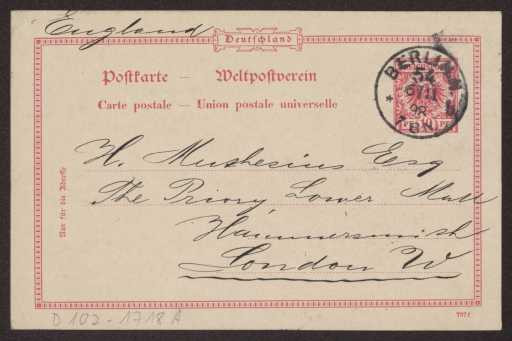 England
Deutschland
Postkarte — Weltpostverein
Carte postale — Union postale universelle
BERLIN W
54
6/11
98
7-8N
H. Muthesius Esq
The Priory Lower Mall
Hammersmith
London W
Nur für die Adresse
D 102-1718 A